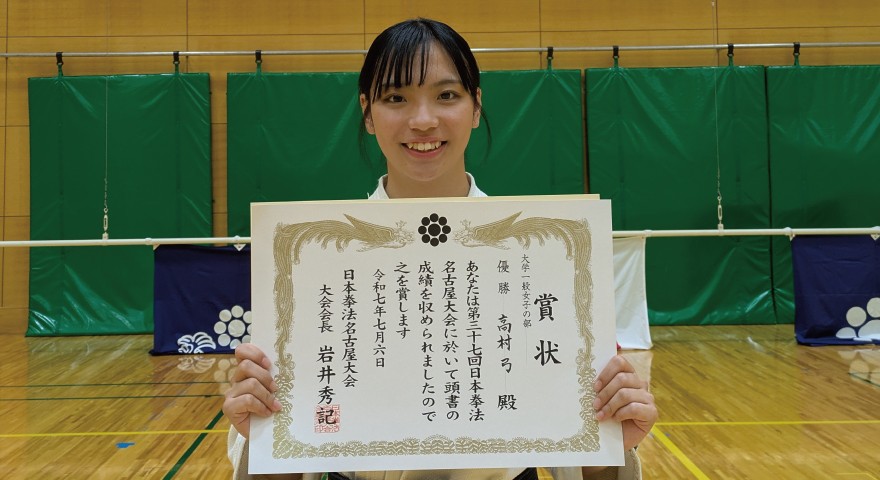 賞状
大学一般女子の部
優勝 高村弓 殿
あなたは第三十七回日本拳法
名古屋大会に於いて頭書の
成績を収められましたので
之を賞します
令和七年七月六日
日本拳法名古屋大会
大会会長 岩井秀記